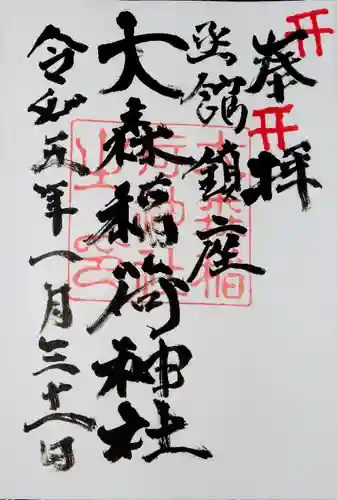 奉拝
函館鎮座
大森稲荷神社
令和元年 月 日
大森稲
荷神社
之印